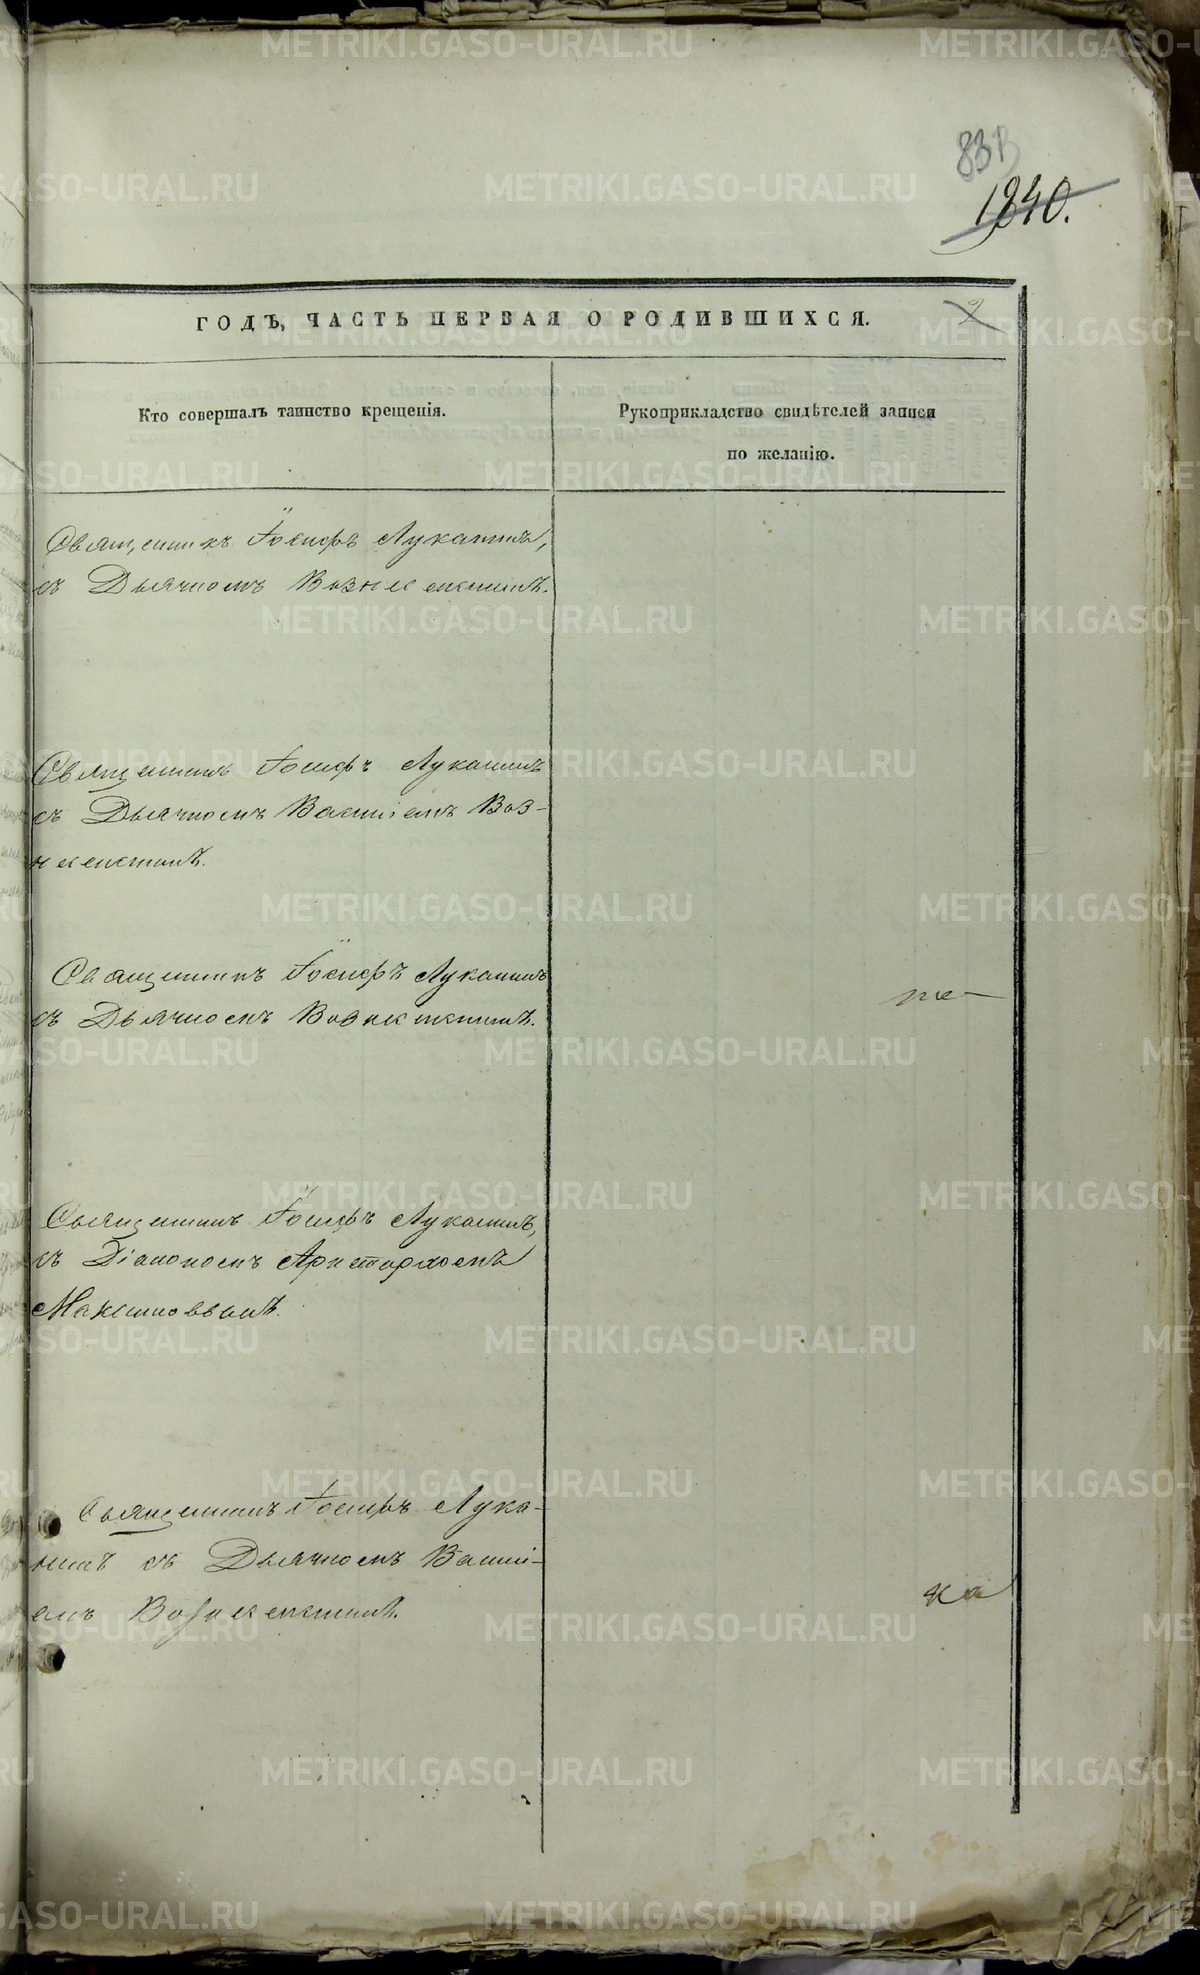 831
1840.
ГОДЪ, ЧАСТЬ ПЕРВАЯ О РОДИВШИХСЯ.
2
Кто совершалъ таинство крещенія.
Рукоприкладство свидѣтелей записи
по желанію.
Священникъ Іосифъ Луканинъ,
съ Дьячкомъ Вознесенскимъ.
Священникъ Іосифъ Луканинъ
съ Дьячкомъ Василіемъ Воз-
несенскимъ.
Священникъ Іосифъ Луканинъ
съ Дьячкомъ Вознесенскимъ.
Священникъ Іосифъ Луканинъ,
съ Діакономъ Аристархомъ
Максимовымъ.
Священникъ Іосифъ Лука-
нинъ съ Дьячкомъ Василі-
емъ Вознесенскимъ.
ка
METRIKI.GASO-URAL.RU